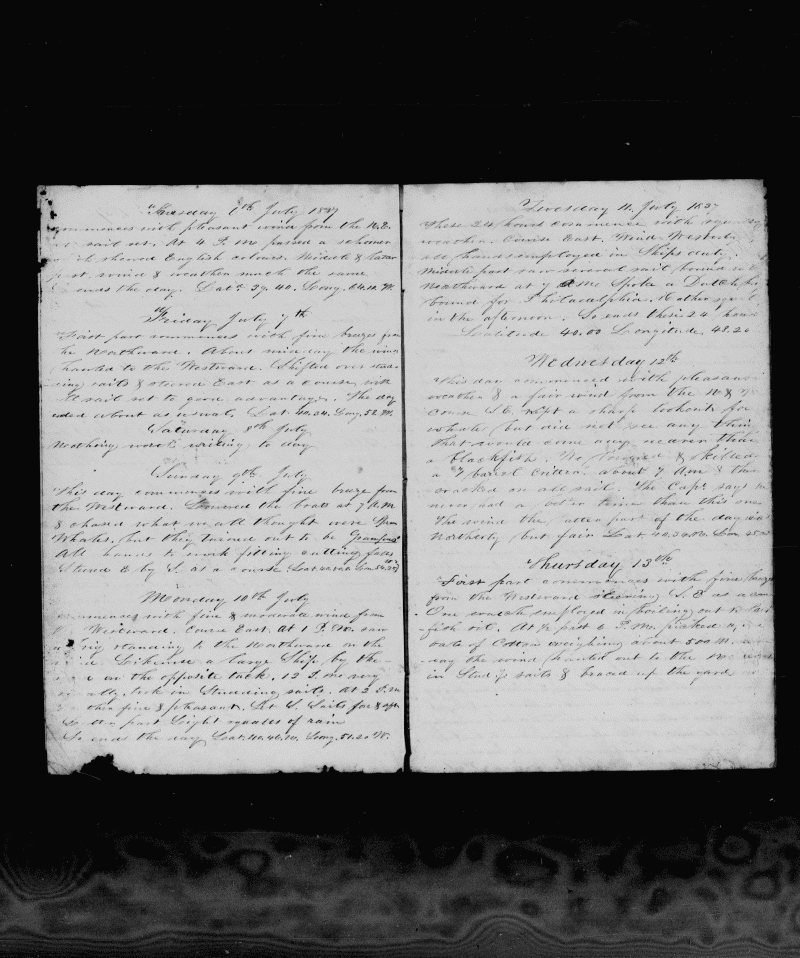 Thursday 6th July 1837
commences with pleasant wind from the N.E.
sail set. At 4 P.M. passed a schooner
showed English colours. Middle & latter
part wind & weather much the same
ends the day. Lat. 39.40. Long. 54.10 W
Friday July 7th
First part commences with fine breezes from
the Northward. About midday the wind
hauled to the Westward. Shifted over
sails & steered East as a course with
sail set to good advantage. The day
ended about as usual. Lat 40.04. Long. 52. W.
Saturday 8th July
Nothing worth writing to day
Sunday 9th July
This day commences with fine breeze from
the Westward. Lowered the boats at 7 A.M
& chased what we all thought were Sperm
Whales, but they turned out to be Grampuses
All hands to work fitting cutting falls
Steered E by S. as a course
Monday 10th July
commences with fine & moderate wind from
Westward. Course East. At 1 P.M. saw
a brig standing to the Northward on the
wind. Likewise a large Ship by the
on the opposite tack. 12
took in Studding sails. At 2 P.M
fine & pleasant. Set S. Sails fore & aft
part Light squalls of rain
So ends the day Lat. 40.40.10. Long. 51.20 W.
Tuesday 11. July 1837
These 24 hours commence with
weather. Course East. Wind Westerly
all hands employed in Ships duty.
Middle part saw several sail bound
Northward at 7 A.M. Spoke a Dutch
bound for Philadelphia.
in the afternoon. So ends these 24 hours
Latitude 40.00 Longitude 48.20
Wednesday 12th
This day commenced with pleasant
weather & a fair wind from the N &
course S.E. kept a sharp lookout for
whale (but did not see any thing
that would come any nearer than
a blackfish. We lowered & killed
a 7 barrel critter about 7 A.M &
cracked on all sail. The Capt. says
never had a better time than this one
The wind the latter part of the day was
Northerly (but fair Lat
Thursday 13th
First part commences with fine breeze
from the Westward steering S. E as a course
One watch employed in boiling out
fish oil. At ½ past 6 P.M. picked a
bale of Cotton weighing about 500
the wind hauled out to the
in Stud g sails & braced up the yards